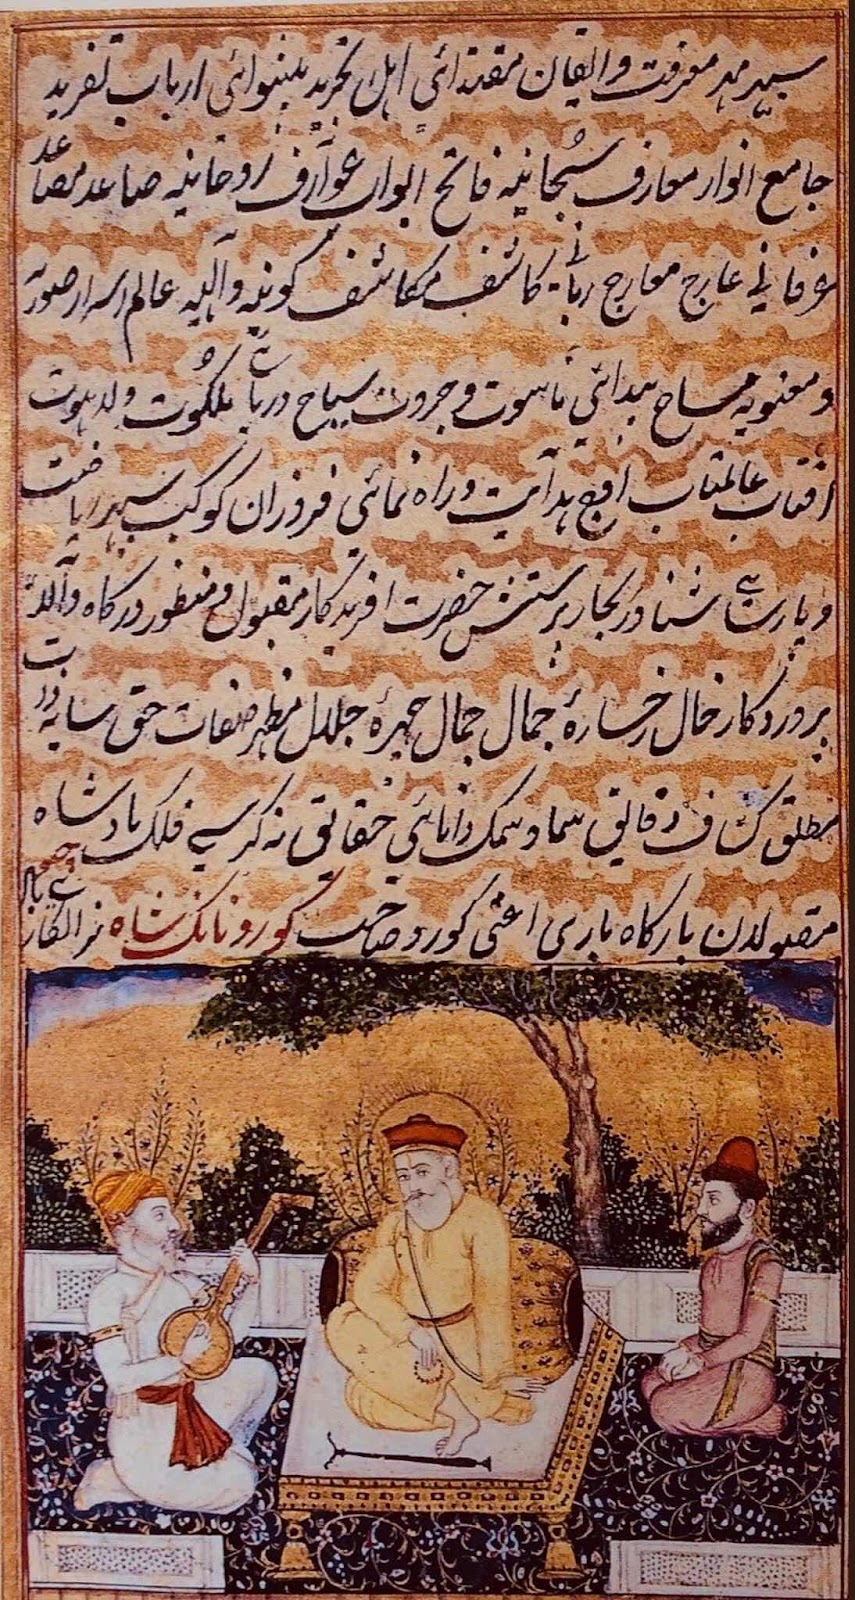 سپهر مهر معرفت و ایقان مقتدائی اهل تجرید پیشوائی ارباب تفرید
جامع انوار معارف سبحانیه فاتح ابواب عوارف روحانیه صاعد مصاعد
عرفانی عارج معارج ربانی کاشف مکاشف کونیه و آلهیه عالم اسرار صوریه
و معنویه مساح بیدائی ناسوت و جبروت سیاح دریائی ملکوت و لاهوت
افتاب عالمتاب اوج هدآیت و راه نمائی فروزان کوکب سپهر ریاضت
و پارسائی شناور بحار پرستش حضرت افریدکار مقبول و منظور درکاه
پروردکار خال رخسارهٔ جمال جمال چهرهٔ جلال مظهر صفات حق سایه
مطلق کشاف دقایق سما و سمک دانائی حقایق نه کرسی فلک بادشاه
مقبولان بارکاه باری اعنی کورو صاحب کورو نانک شاه